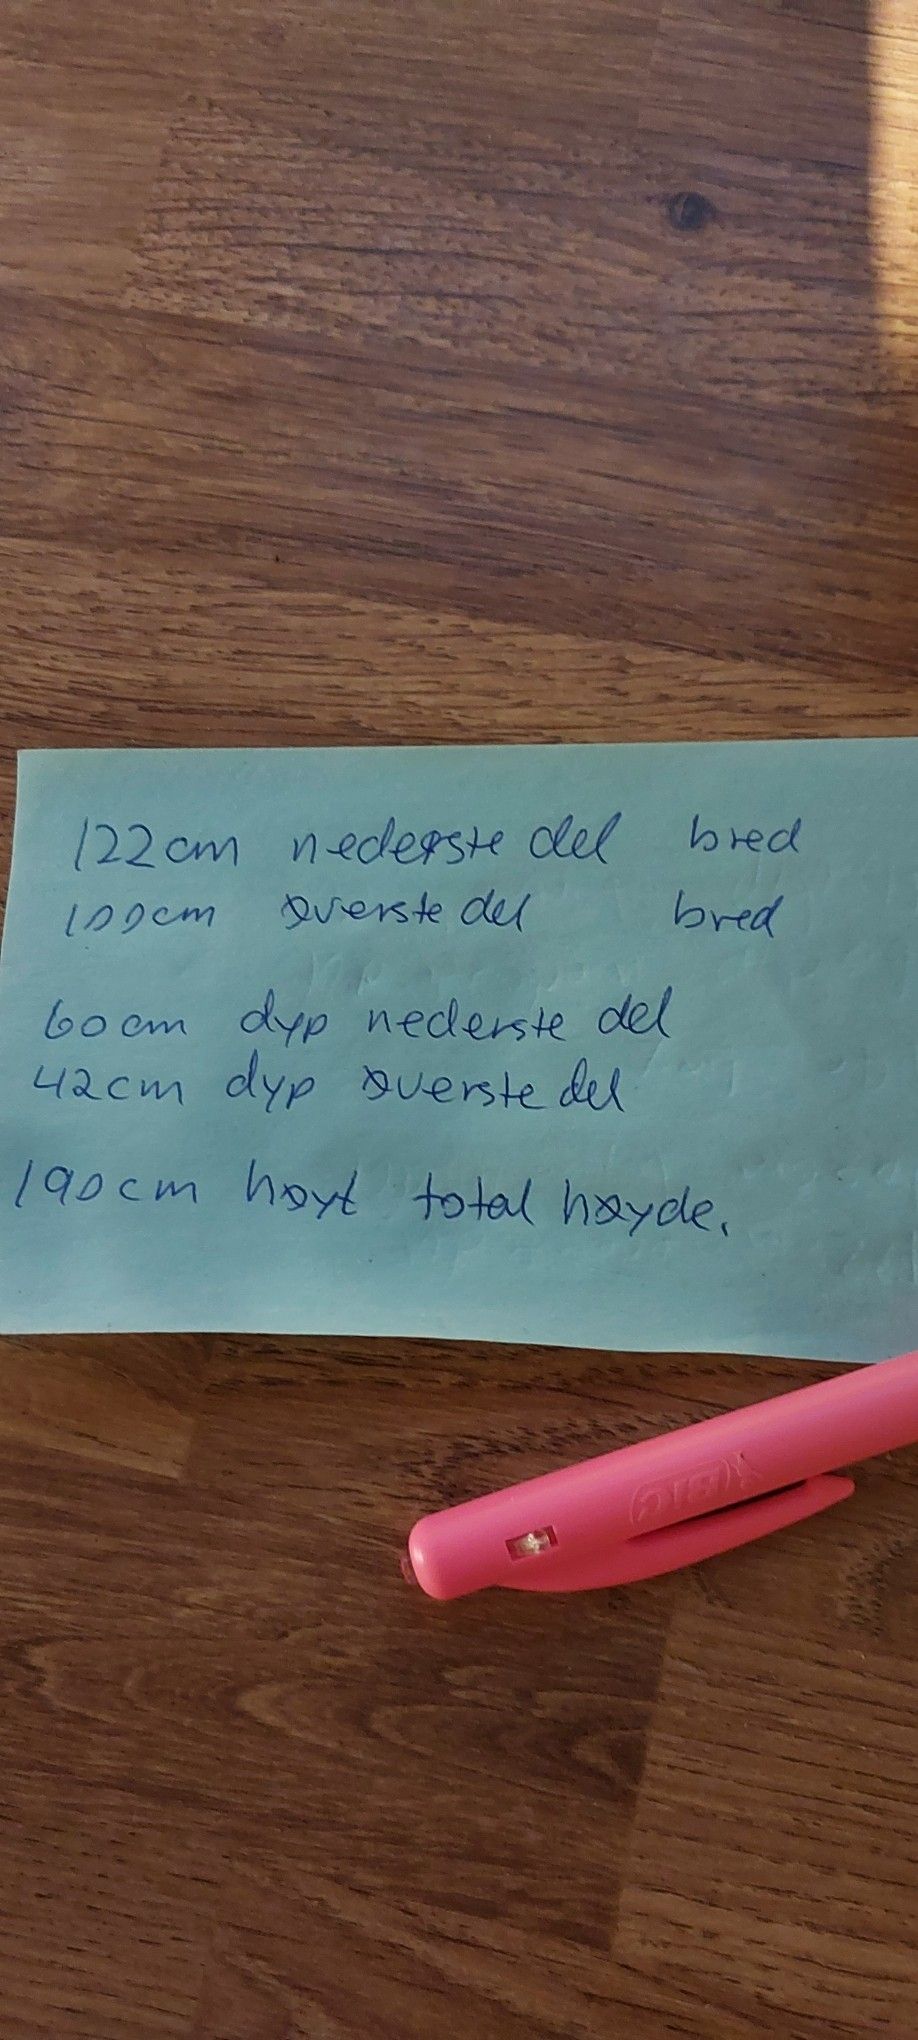 122cm nederste del bred
100cm øverste del bred
60cm dyp nederste del
42cm dyp øverste del
190cm høyt total høyde.
BIC